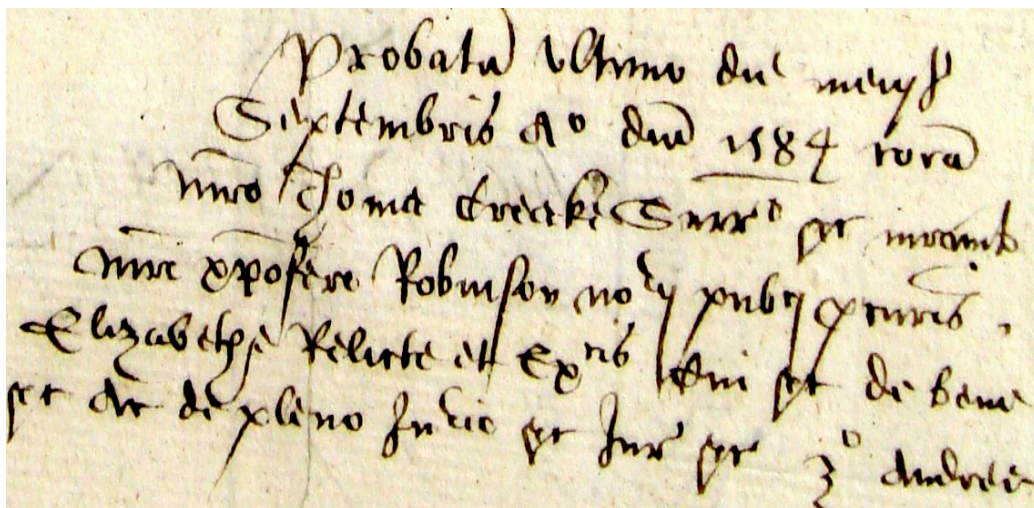 Probatū ultimo die mens
Septembris Ao dni 1584 corā
mro Thoma Creake Surr etc iuramto
mri xpofere Robinson norij pubci procuris
Elizabethe Relicte et Execis dui etc de bene
etc Ac de pleno Inrio etc Jur etc 3o Andree